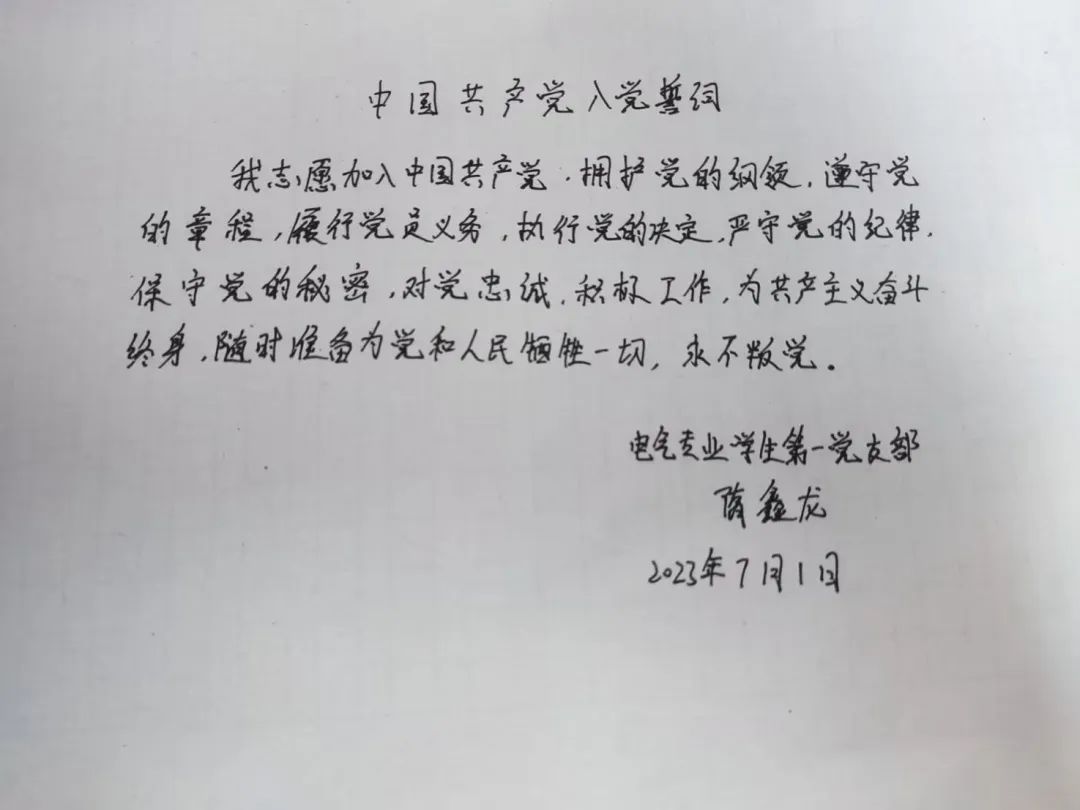 中国共产党入党誓词
我志愿加入中国共产党，拥护党的纲领，遵守党
的章程，履行党员义务，执行党的决定，严守党的纪律，
保守党的秘密，对党忠诚，积极工作，为共产主义奋斗
终身，随时准备为党和人民牺牲一切，永不叛党。
电气专业学生第一党支部
隋鑫龙
2023年7月1日